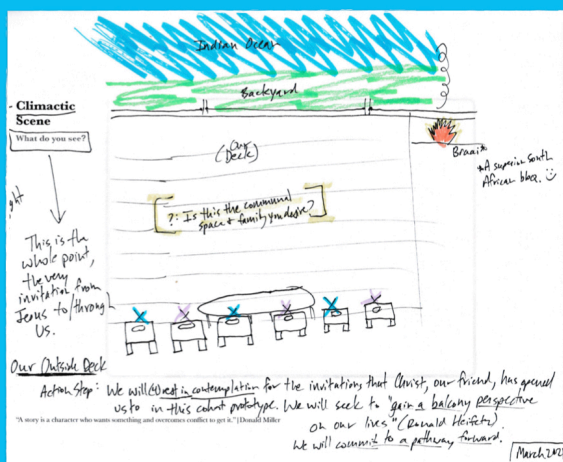 Indian Ocean
Backyard
- Climactic
Scene
What do you see?
(Our
Deck)
Braai*
*A superior South
African bbq.
?: Is this the communal
space & family you desire?
This is the
whole point,
the very
invitation from
Jesus to/through
us.
Our Outside Deck
Action Step: We will rest in contemplation for the invitations that Christ, our friend, has opened
us to in this cohort prototype. We will seek to "gain a balcony perspective
on our lives" (Ronald Heifetz)
We will commit to a pathway forward.
"A story is a character who wants something and overcomes conflict to get it." | Donald Miller
March 202